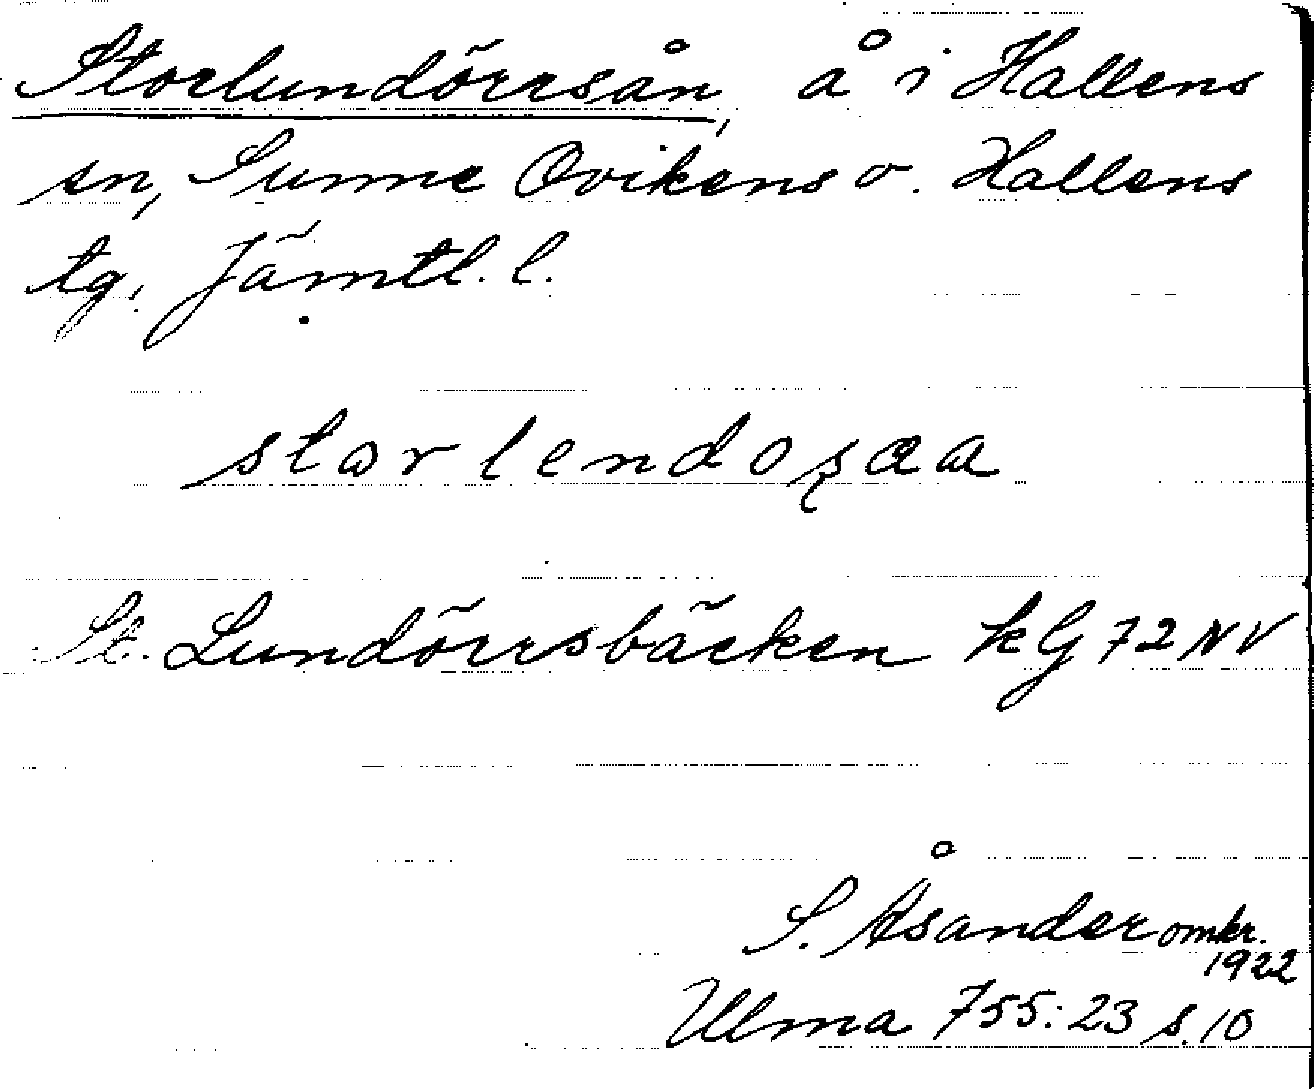 Storlundörrsån, å i Hallens
sn, Sunne Ovikens o. Hallens
tg, Jämtl. l.
St. Lundörrsbäcken kG 72 NV
S. Åsander omkr.
1922
Ulma 755:23 s. 10